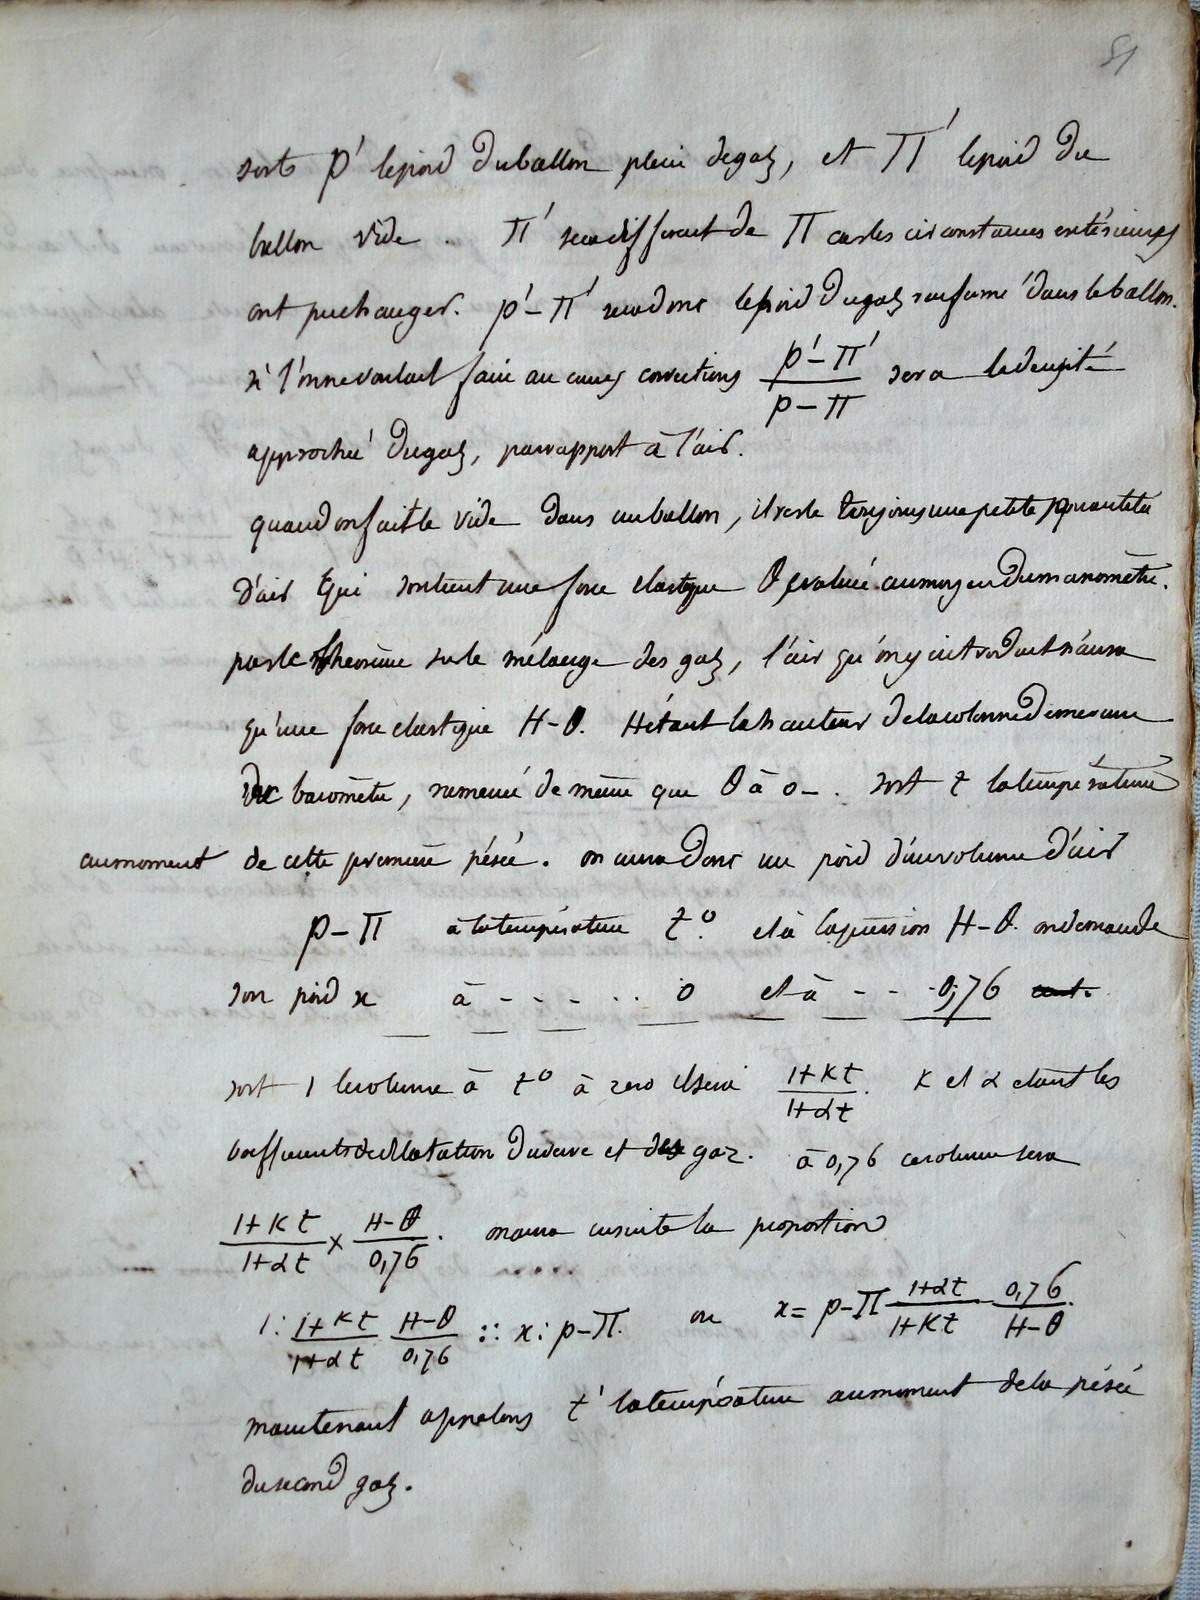 51
soit p' le poid du ballon plein de gaz, et Π' le poid du
ballon vide. Π' sera different de Π car les circonstances extérieures
ont pu changer. p' – Π' sera donc le poid du gaz renfermé dans le ballon.
si l'on ne voulait faire aucunes corrections (p' – Π')/(p – Π) sera la densité
approchée du gaz, par rapport à l'air.
quand on fait le vide dans un ballon, il reste toujours une petite quantité
d'air qui soutient une force elastique θ evaluée au moyen du manomètre.
par le theorème sur le mélange des gaz, l'air qu'on y introduit n'aura
qu'une force elastique H – θ. H étant la hauteur de la colonne de mercure
du baromètre, ramenée de même que θ à 0 –. soit t la température
au moment de cette première pésée. on aura donc un poid d'un volume d'air
p – Π à la température t°. et à la pression H – θ. on demande
son poid x à - - - - . . 0 et à - - - 0,76
soit 1 le volume à t° à zero il sera (1+Kt)/(1+αt). K et α étant les
coefficients de dilatation du verre et des gaz. à 0,76 ce volume sera
(1+Kt)/(1+αt) × (H–θ)/0,76. on aura ensuite la proportion
1 : (1+Kt)/(1+αt) (H–θ)/0,76 :: x : p – Π. ou x = p – Π (1+αt)/(1+Kt) 0,76/(H–θ).
maintenant appelons t' la température au moment de la pésée
du second gaz.